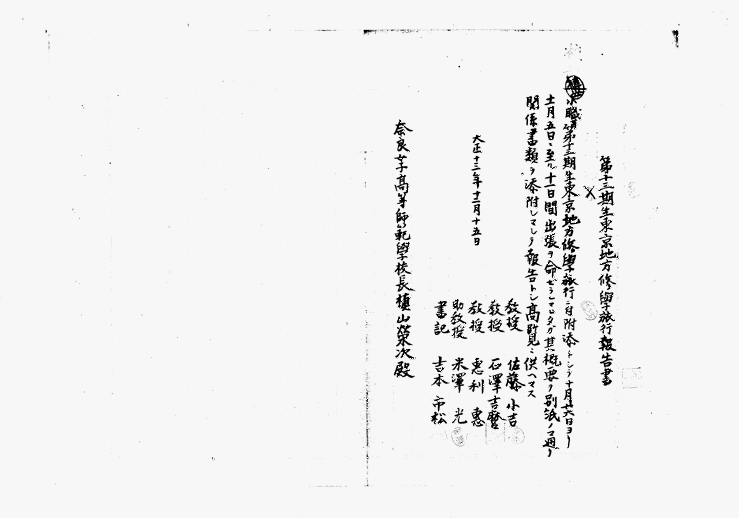 第十三期生東京地方修學旅行報告書
小職等第十三期生東京地方修學旅行ニ付附添トシテ十月廿六日ヨリ
十一月五日ニ至ル十一日間出張ヲ命ゼラレマシタガ其ノ概要ヲ別紙ノ通リ
関係書類ヲ添附シマシテ報告トシ高覧ニ供ヘマス
大正十三年十一月十五日
教授 佐藤小吉
教授 石澤吉麿
教授 惠利惠
助教授 米澤光
書記 吉本市松
奈良女子高等師範學校長槇山榮次殿